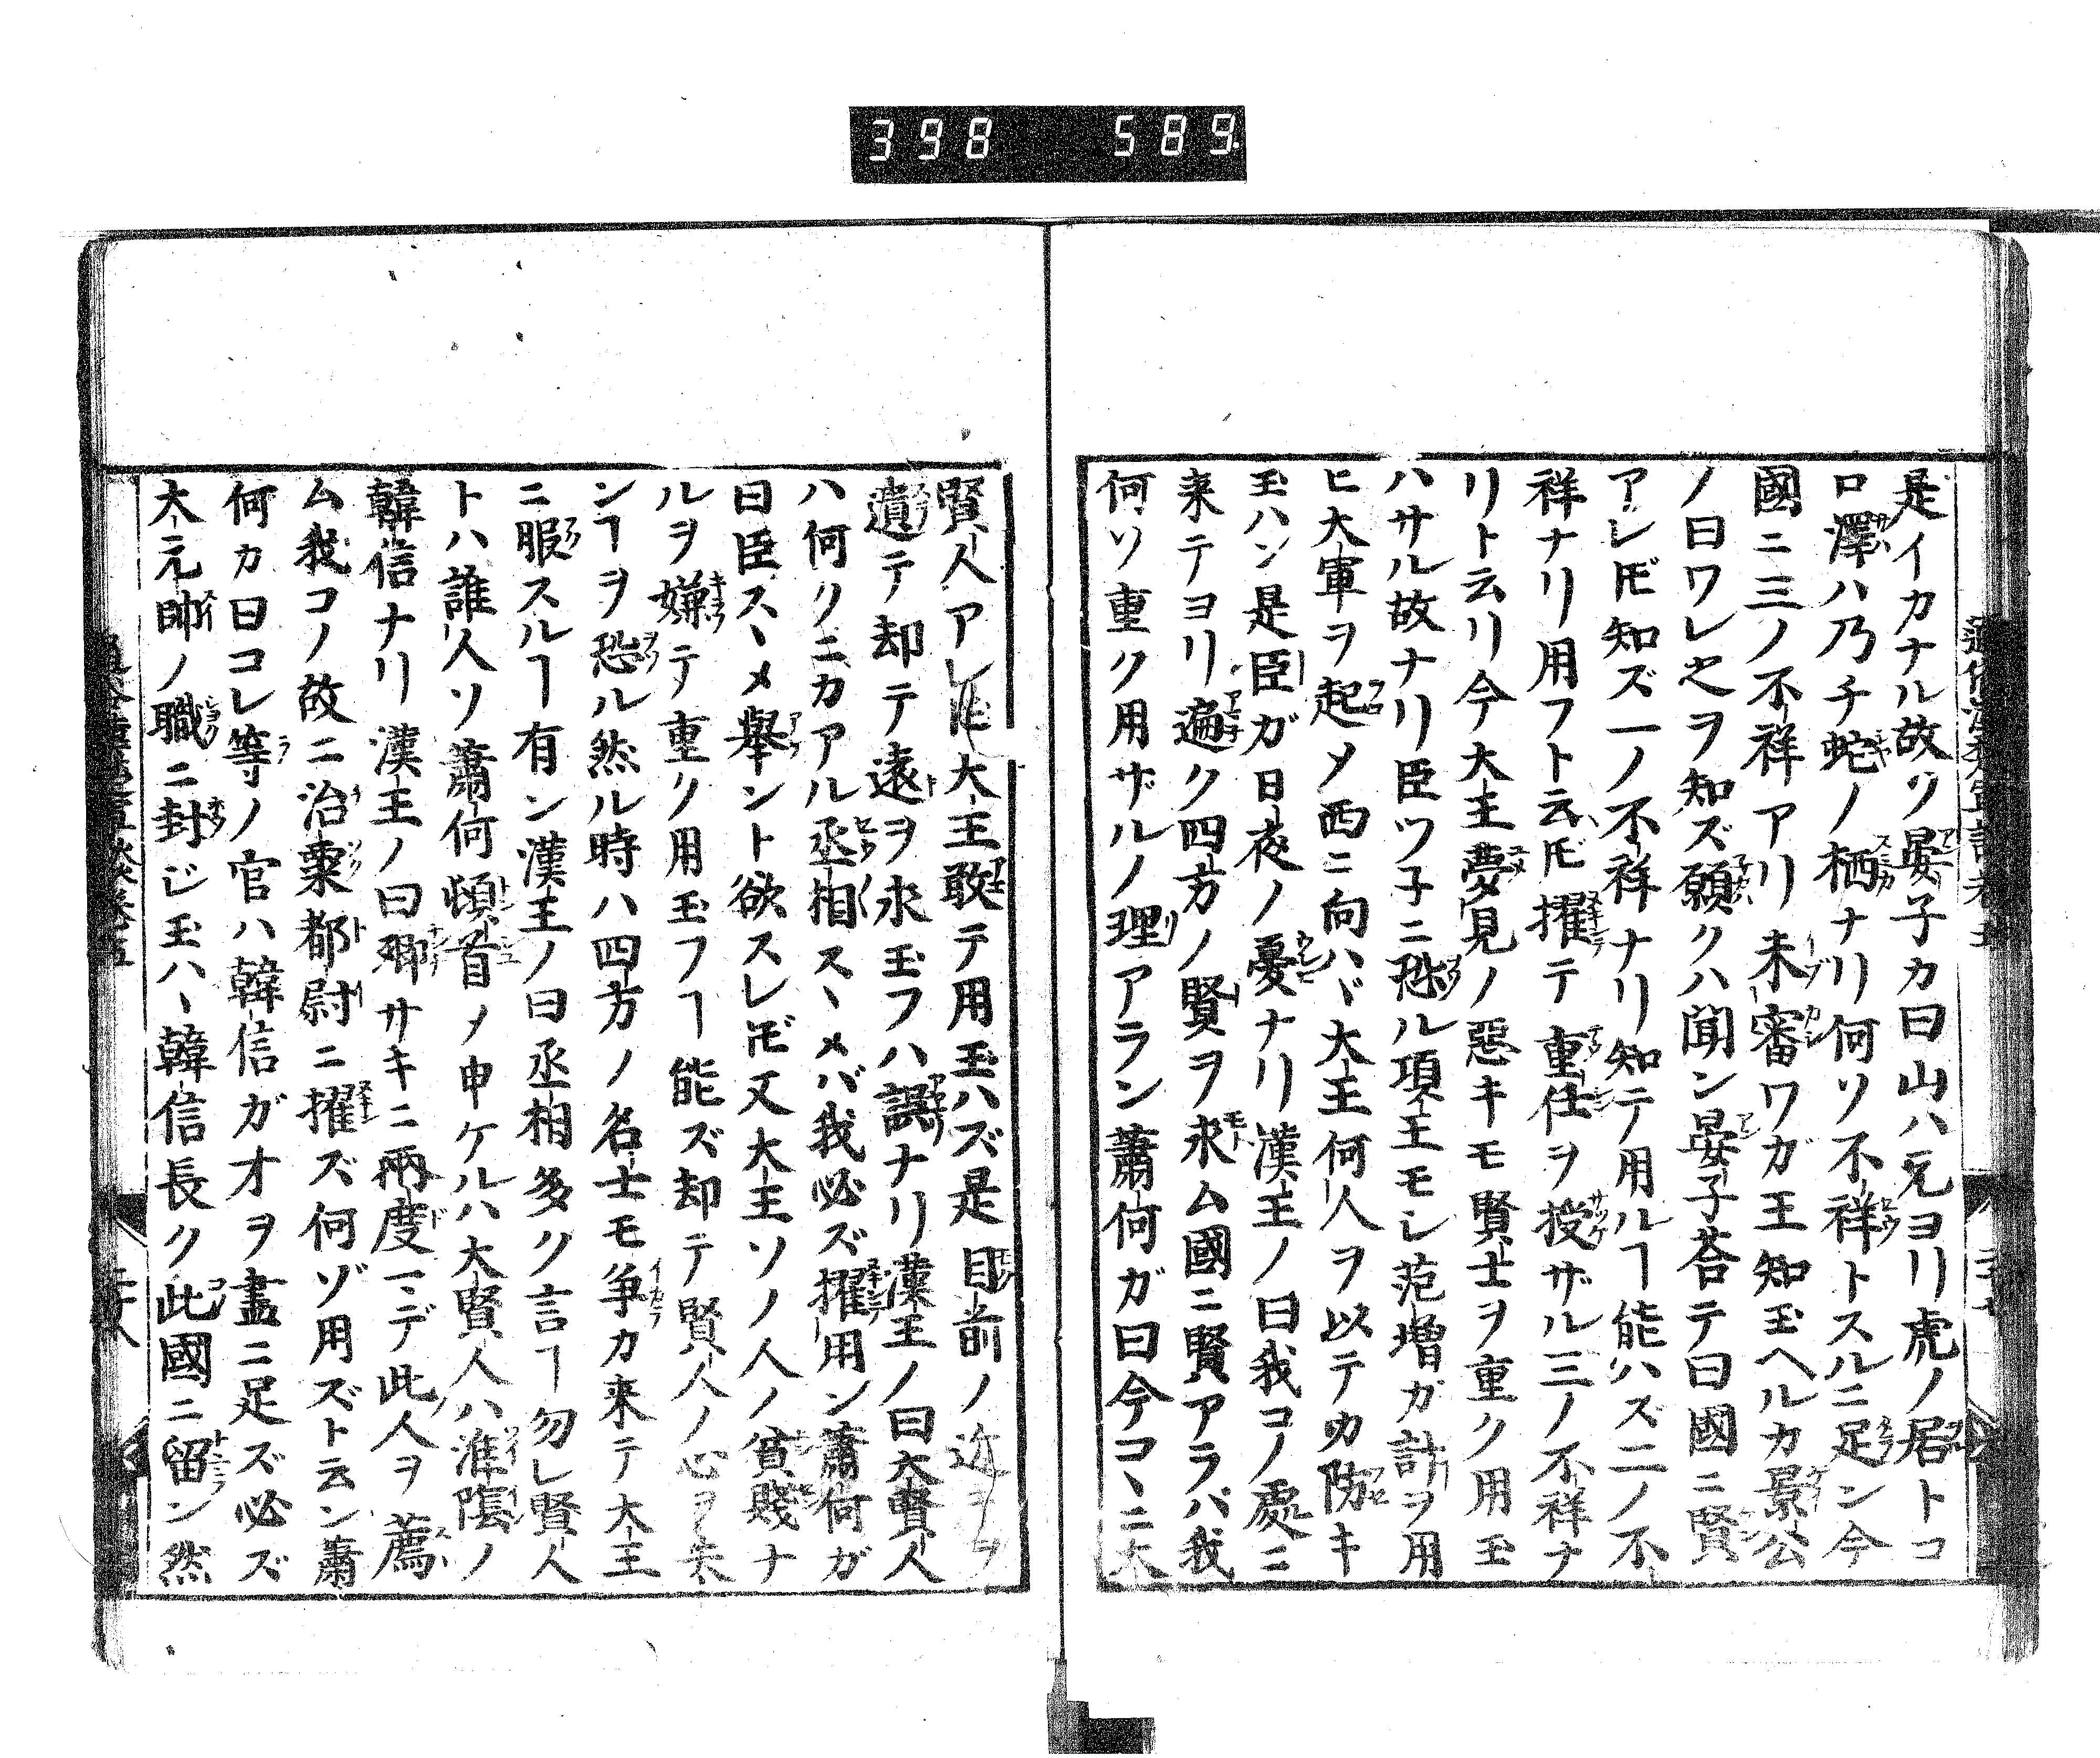 398 589
是イカナル故ソ晏子カ曰山ハ元ヨリ虎ノ居トコ
ロ澤ハ乃チ蛇ノ栖ナリ何ソ不祥トスルニ足ン今
國ニ三ノ不祥アリ未審ワガ王知玉ヘルカ景公
ノ曰ワレ之ヲ知ズ願クハ聞ン晏子荅テ曰國ニ賢
アレ𪜈知ズ一ノ不祥ナリ知テ用ルヿ能ハズ二ノ不
祥ナリ用フト云𪜈擢テ重任ヲ授ザル三ノ不祥ナ
リト云リ今大王夢見ノ惡キモ賢士ヲ重ク用玉
ハサル故ナリ臣ツ子ニ恐ル項王モシ范増ガ計ヲ用
ヒ大軍ヲ起メ西ニ向ハヾ大王何人ヲ以テカ防キ
玉ハン是臣ガ日夜ノ憂ナリ漢王ノ曰我コノ處ニ
来テヨリ遍ク四方ノ賢ヲ求ム國ニ賢アラバ我
何ソ重ク用ザルノ理アラン蕭何ガ曰今コヽニ大
賢人アレ𪜈大王敢テ用玉ハズ是目前ノ近ヲ
遺テ却テ遠ヲ求玉フハ誤ナリ漢王ノ曰大賢人
ハ何クニカアル丞相スヽメバ我必ズ擢用ン蕭何ガ
曰臣スヽメ舉ント欲スレ𪜈又大王ソノ人ノ貧賤ナ
ルヲ嫌テ重ク用玉フヿ能ズ却テ賢人ノ心ヲ失
ンヿヲ恐ル然ル時ハ四方ノ名士モ争カ来テ大王
ニ服スルヿ有ン漢王ノ曰丞相多ク言ヿ勿レ賢人
トハ誰人ソ蕭何頓首メ申ケルハ大賢人ハ淮陰ノ
韓信ナリ漢王ノ曰卿サキニ兩度マデ此人ヲ薦
ム我コノ故ニ治粟都尉ニ擢ズ何ゾ用ズト云ン蕭
何カ曰コレ等ノ官ハ韓信ガ才ヲ盡ニ足ズ必ズ
大元帥ノ職ニ封ジ玉ハヽ韓信長ク此國ニ留ン然